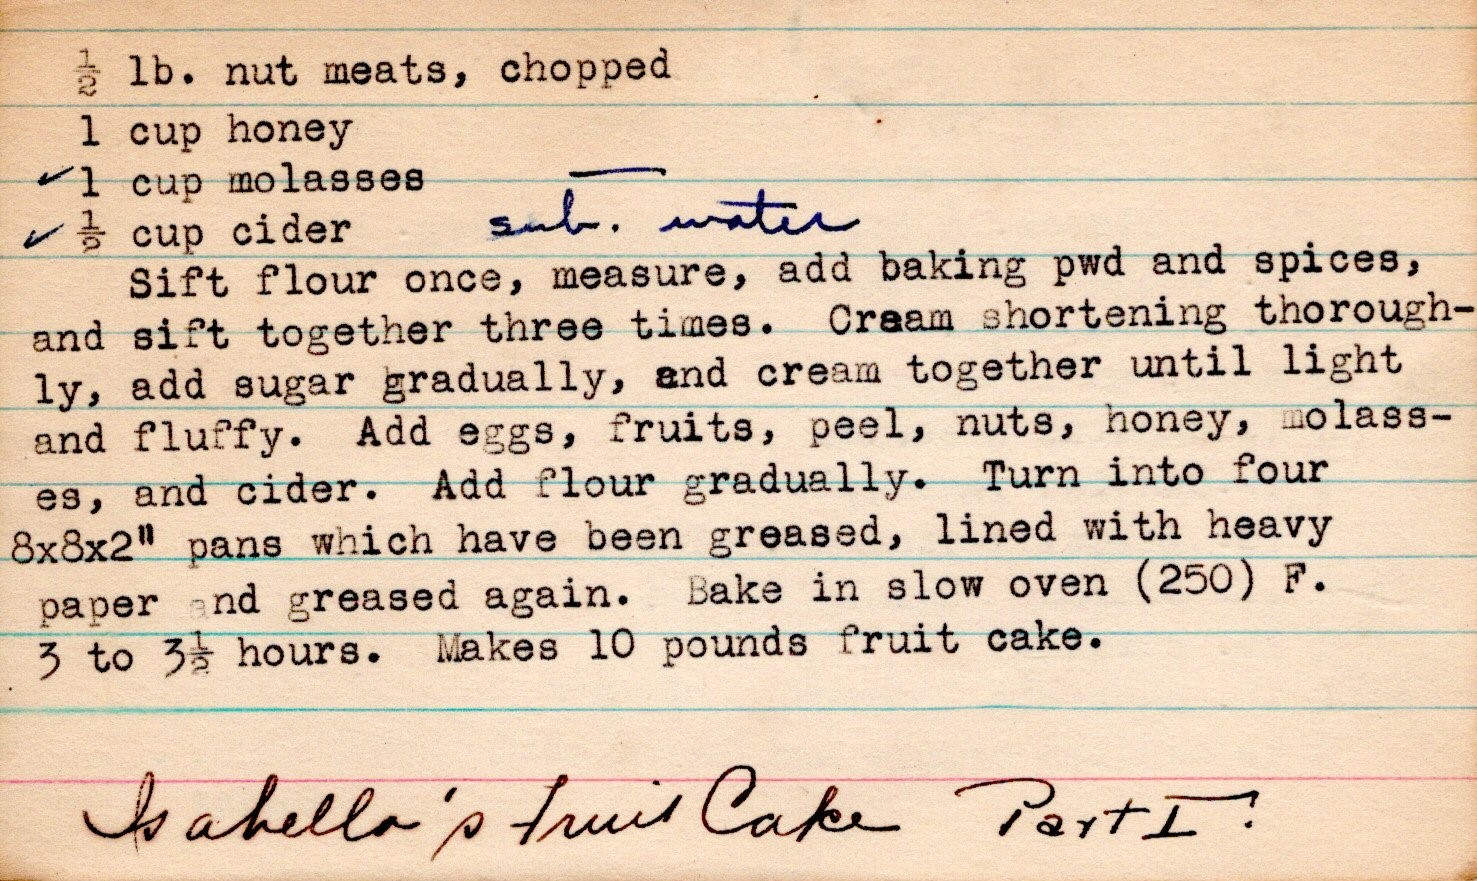 ½ lb. nut meats, chopped
1 cup honey
✓1 cup molasses
✓ ½ cup cider sub. water
Sift flour once, measure, add baking pwd and spices,
and sift together three times. Cream shortening thorough-
ly, add sugar gradually, and cream together until light
and fluffy. Add eggs, fruits, peel, nuts, honey, molass-
es, and cider. Add flour gradually. Turn into four
8x8x2" pans which have been greased, lined with heavy
paper and greased again. Bake in slow oven (250) F.
3 to 3½ hours. Makes 10 pounds fruit cake.
Isabella's Fruit Cake Part I.